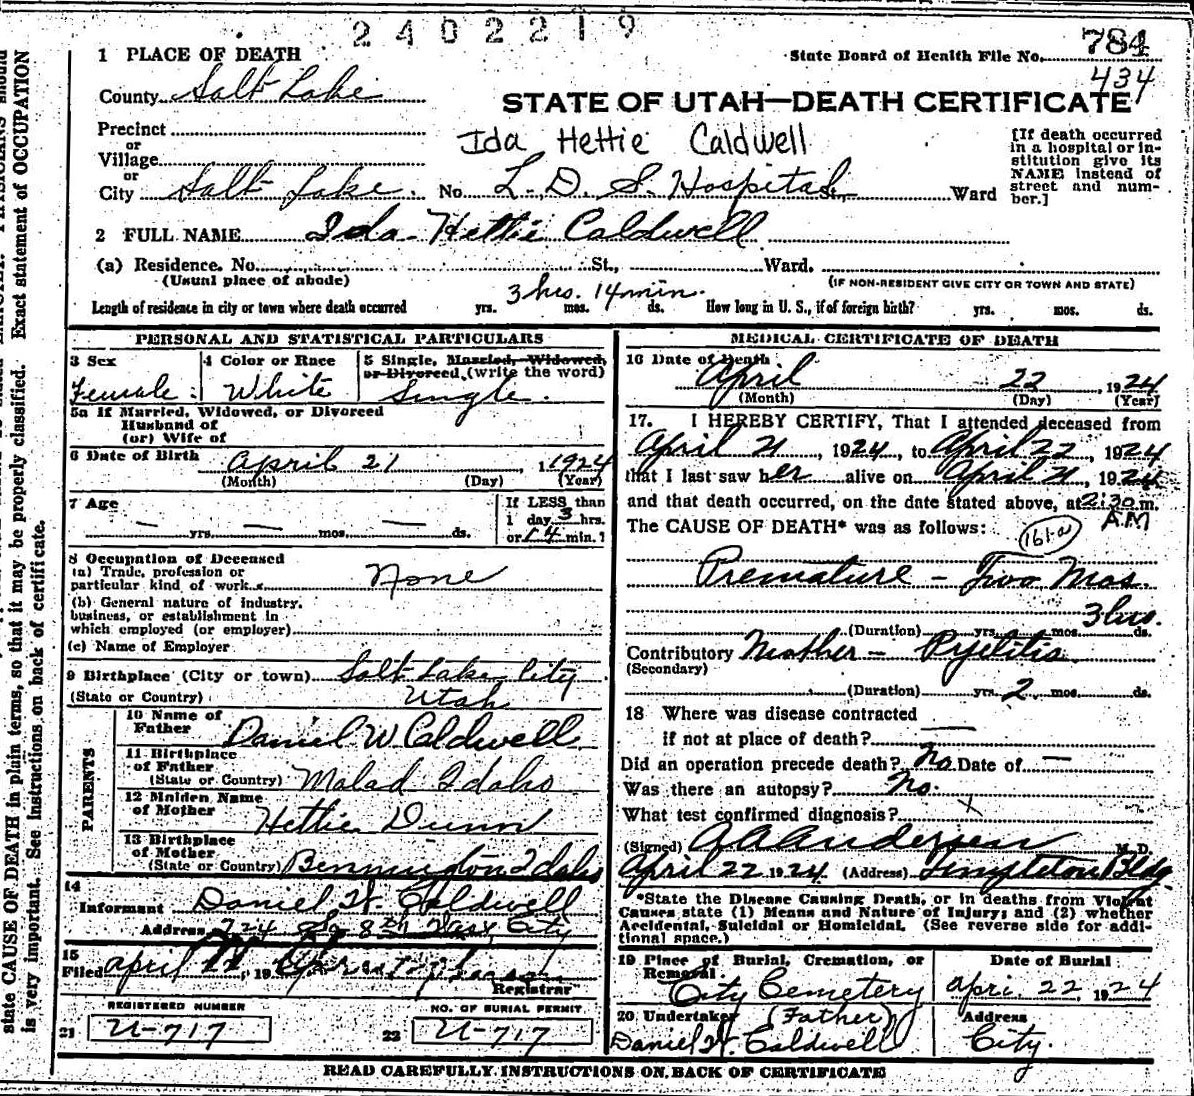 2402219
1 PLACE OF DEATH
State Board of Health File No. 784
434
County Salt Lake
STATE OF UTAH—DEATH CERTIFICATE
Precinct
or
Village
or
City Salt Lake. No L. D. S. Hospital, Ward
Ida Hettie Caldwell
[If death occurred
in a hospital or in-
stitution give its
NAME instead of
street and num-
ber.]
2 FULL NAME Ida Hettie Caldwell
(a) Residence. No. St., Ward.
(Usual place of abode)
(IF NON-RESIDENT GIVE CITY OR TOWN AND STATE)
Length of residence in city or town where death occurred yrs. 3 hrs. 14 min. mos. ds. How long in U. S., if of foreign birth? yrs. mos. ds.
PERSONAL AND STATISTICAL PARTICULARS
3 Sex
Female
4 Color or Race
White
5 Single, Married, Widowed,
or Divorced, (write the word)
Single
5a If Married, Widowed, or Divorced
Husband of
(or) Wife of
6 Date of Birth April 21, 1924
(Month) (Day) (Year)
7 Age
— yrs. — mos. — ds.
If LESS than
1 day 3 hrs.
or 14 min.?
8 Occupation of Deceased
(a) Trade, profession or
particular kind of work None
(b) General nature of industry,
business, or establishment in
which employed (or employer)
(c) Name of Employer
9 Birthplace (City or town) Salt Lake City
(State or Country) Utah
PARENTS
10 Name of
Father Daniel W Caldwell
11 Birthplace
of Father
(State or Country) Malad Idaho
12 Maiden Name
of Mother Hettie Dunn
13 Birthplace
of Mother
(State or Country) Bennington Idaho
14
Informant Daniel W. Caldwell
Address 724 So 8th East City
15
Filed April 22, 19
Registrar
REGISTERED NUMBER
21 U-717
NO. OF BURIAL PERMIT
22 U-717
MEDICAL CERTIFICATE OF DEATH
16 Date of Death
April 22, 1924
(Month) (Day) (Year)
17. I HEREBY CERTIFY, That I attended deceased from
April 21, 1924, to April 22, 1924
that I last saw her alive on April 21, 1924
and that death occurred, on the date stated above, at 2:30 m.
AM
The CAUSE OF DEATH* was as follows:
161-a
Premature - Two Mos.
3 hrs.
(Duration) yrs. mos. ds.
Contributory Mother - Pyelitis
(Secondary)
(Duration) yrs. 2 mos. ds.
18 Where was disease contracted
if not at place of death? —
Did an operation precede death? No. Date of —
Was there an autopsy? No.
What test confirmed diagnosis?
(Signed) A A Anderson M. D.
April 22 1924. (Address) Templeton Bldg
*State the Disease Causing Death, or in deaths from Violent
Causes state (1) Means and Nature of Injury; and (2) whether
Accidental, Suicidal or Homicidal. (See reverse side for addi-
tional space.)
19 Place of Burial, Cremation, or
Removal.
City Cemetery
Date of Burial
Apri. 22, 1924
20 Undertaker (Father)
Daniel W. Caldwell
Address
City.
READ CAREFULLY INSTRUCTIONS ON BACK OF CERTIFICATE
state CAUSE OF DEATH in plain terms, so that it may be properly classified. Exact statement of OCCUPATION
is very important. See instructions on back of certificate.